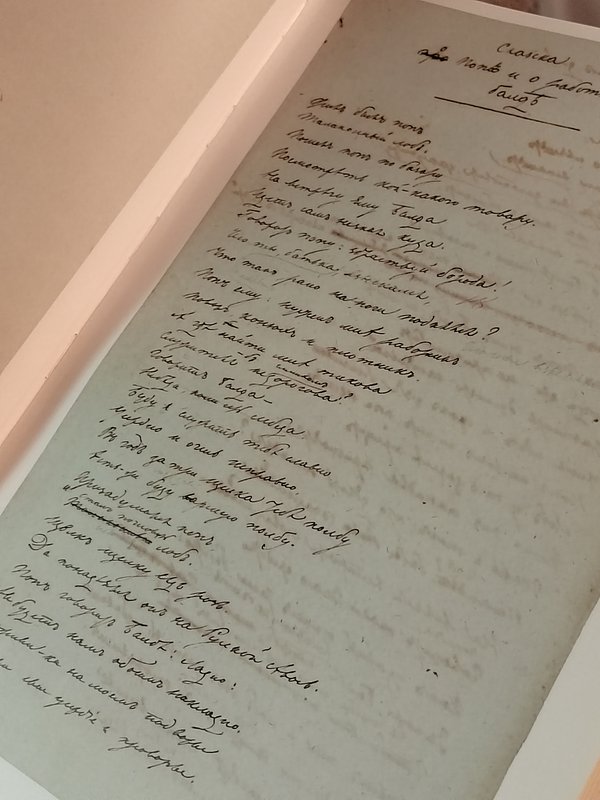 Сказка
Попѣ и о работ
Балдѣ
Жилъ былъ попъ
Толоконный лобъ.
Пошелъ попъ по базару
Посмотрѣть кой-какого товару.
На встрѣчу ему Балда
Идетъ самъ незная куда.
Говоритъ попу: здраствуй борода!
Что ты батька
Что такъ рано на ноги поднялся?
Попъ ему: нуженъ мнѣ работникъ
Поваръ конюхъ и плотникъ.
А гдѣ найти мнѣ такова
Служителя недорогова?
Говоритъ Балда —
Буду я служить тебѣ славно
Усердно и очень исправно.
Въ годъ за три щелка тебѣ по лбу
Ѣсть-же буду полбу.
Призадумался попъ
лобъ.
Щелкъ щелку вѣдь розь
Да понадѣялся онъ на Русской авось.
Попъ говоритъ Балдѣ: Ладно!
Небудетъ намъ обоимъ накладно.
ка на моемъ подворьи
и проворье.